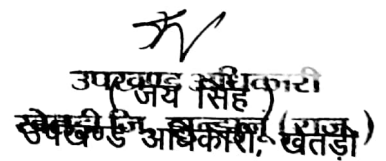 उपखण्ड अधिकारी
(जय सिंह)
खेतड़ी जि. झुन्झुनू (राज.)
उपखण्ड अधिकारी, खेतड़ी